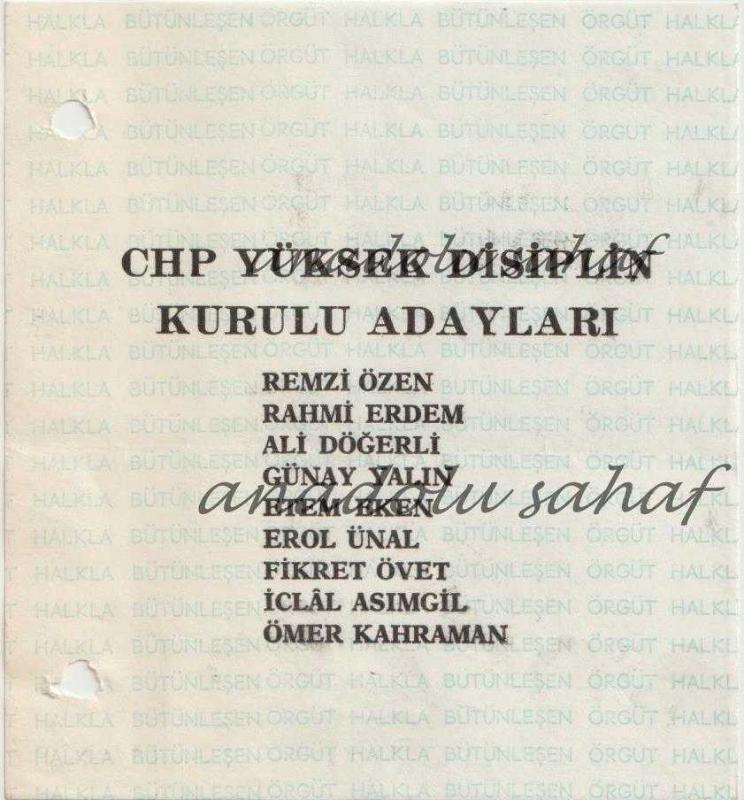 HALKLA BÜTÜNLEŞEN ÖRGÜT HALKLA BÜTÜNLEŞEN ÖRGÜT HALKLA
CHP YÜKSEK DİSİPLİN
KURULU ADAYLARI
REMZİ ÖZEN
RAHMİ ERDEM
ALİ DÖĞERLİ
GÜNAY YALIN
ETEM EKEN
EROL ÜNAL
FİKRET ÖVET
İCLÂL ASIMGİL
ÖMER KAHRAMAN
anadolu sahaf
anadolu sahaf